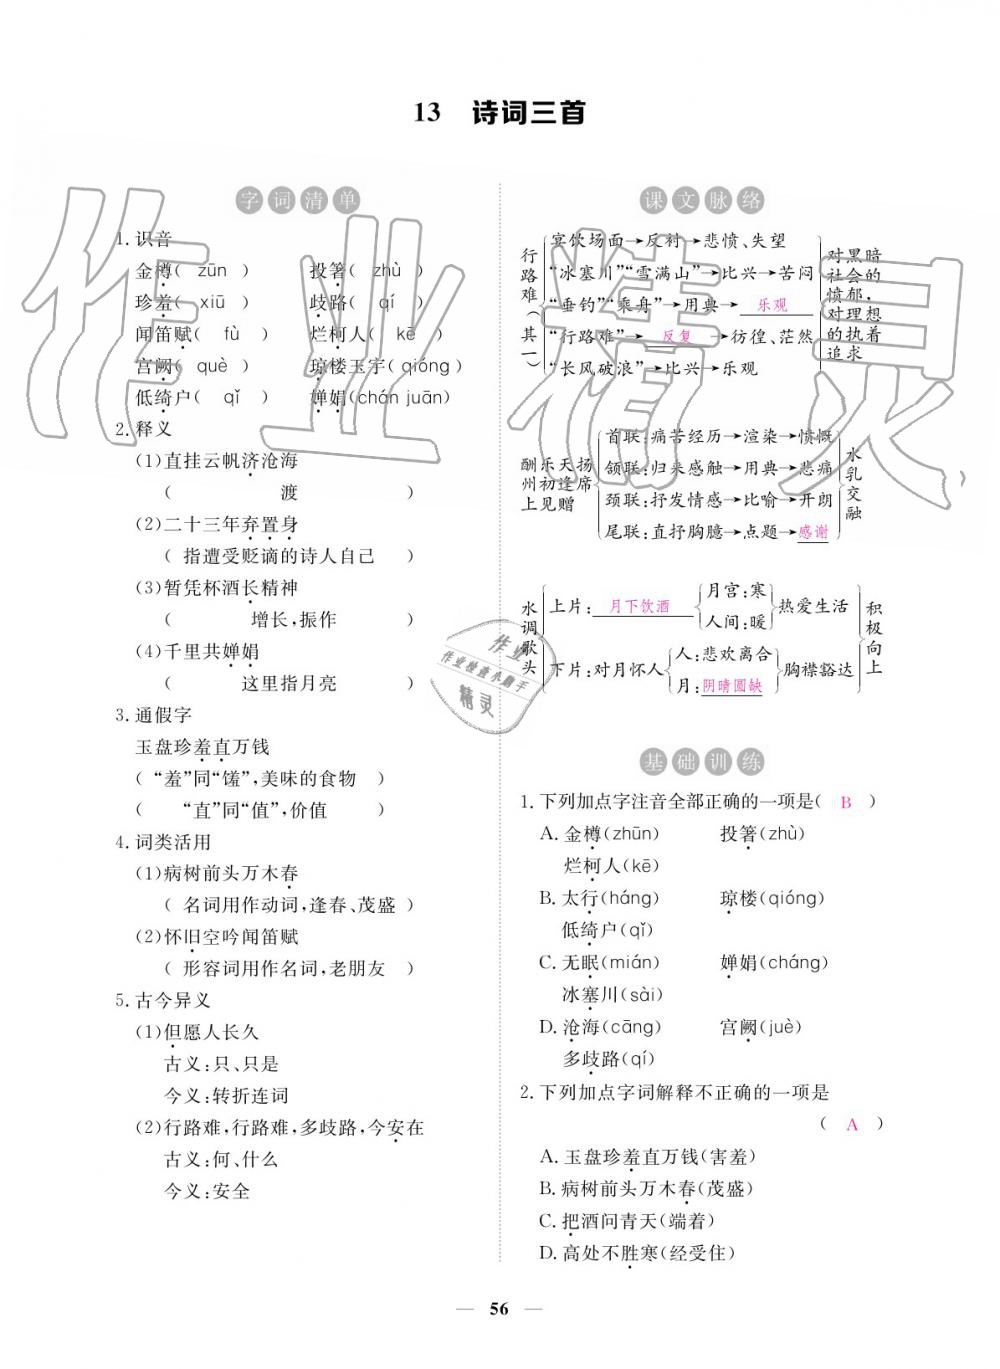 13 诗词三首
字词清单
1. 识音
金樽( zūn ) 投箸( zhù )
珍羞( xiū ) 歧路( qí )
闻笛赋( fù ) 烂柯人( kē )
宫阙( què ) 琼楼玉宇(qióng)
低绮户( qǐ ) 婵娟(chán juān)
2. 释义
(1)直挂云帆济沧海
( 渡 )
(2)二十三年弃置身
( 指遭受贬谪的诗人自己 )
(3)暂凭杯酒长精神
( 增长,振作 )
(4)千里共婵娟
( 这里指月亮 )
3. 通假字
玉盘珍羞直万钱
( “羞”同“馐”,美味的食物 )
( “直”同“值”,价值 )
4. 词类活用
(1)病树前头万木春
( 名词用作动词,逢春、茂盛 )
(2)怀旧空吟闻笛赋
( 形容词用作名词,老朋友 )
5. 古今异义
(1)但愿人长久
古义:只、只是
今义:转折连词
(2)行路难,行路难,多歧路,今安在
古义:何、什么
今义:安全
课文脉络
行路难(其一)
宴饮场面→反衬→悲愤、失望
“冰塞川”“雪满山”→比兴→苦闷
“垂钓”“乘舟”→用典→ 乐观
“行路难”→ 反复 →彷徨、茫然
“长风破浪”→比兴→乐观
对黑暗社会的愤郁,对理想的执着追求
酬乐天扬州初逢席上见赠
首联:痛苦经历→渲染→愤慨
颔联:归来感触→用典→悲痛
颈联:抒发情感→比喻→开朗
尾联:直抒胸臆→点题→感谢
水乳交融
水调歌头
上片: 月下饮酒 月宫:寒 人间:暖 热爱生活
下片:对月怀人 人:悲欢离合 月:阴晴圆缺 胸襟豁达
积极向上
基础训练
1. 下列加点字注音全部正确的一项是( B )
A. 金樽(zhūn) 投箸(zhù)
烂柯人(kē)
B. 太行(háng) 琼楼(qióng)
低绮户(qǐ)
C. 无眠(mián) 婵娟(cháng)
冰塞川(sài)
D. 沧海(cāng) 宫阙(juè)
多歧路(qí)
2. 下列加点字词解释不正确的一项是
( A )
A. 玉盘珍羞直万钱(害羞)
B. 病树前头万木春(茂盛)
C. 把酒问青天(端着)
D. 高处不胜寒(经受住)
— 56 —
作业精灵
作业
作业检查小助手
精灵